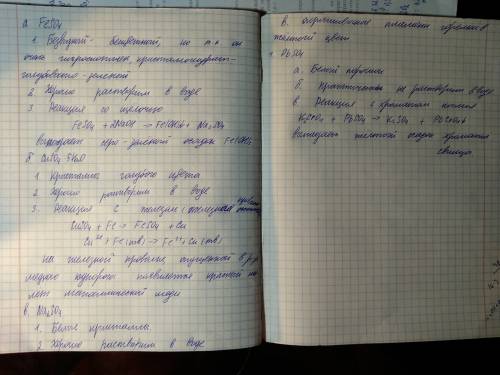 а. FeSO₄
1. Безводный - бесцветный, но т.к он
очень гигроскопичен, кристаллогидрат-
голубовато-зеленой
2. Хорошо растворим в воде
3. Реакция со щелочью
FeSO₄ + 2NaOH → Fe(OH)₂↓ + Na₂SO₄
выпадает серо-зеленый осадок Fe(OH)₂
б. CuSO₄·5H₂O
1. Кристаллы голубого цвета
2. Хорошо растворим в воде
3. Реакция с железом (железная
CuSO₄ + Fe → FeSO₄ + Cu
Cu²⁺ + Fe(тв) → Fe²⁺ + Cu(тв)
на железной проволке, опущенной в р-р
медного купороса появляется красный на-
лет металлической меди
в. Na₂SO₄
1. Белые кристаллы.
2. Хорошо растворим в воде
в. окрашивание пламени горелки в
желтый цвет
PbSO₄
а. Белый порошок
б. Практически не растворим в воде
в. Реакция с хроматом калия
K₂CrO₄ + PbSO₄ → K₂SO₄ + PbCrO₄↓
выпадает желтый осадок хромата
свинца